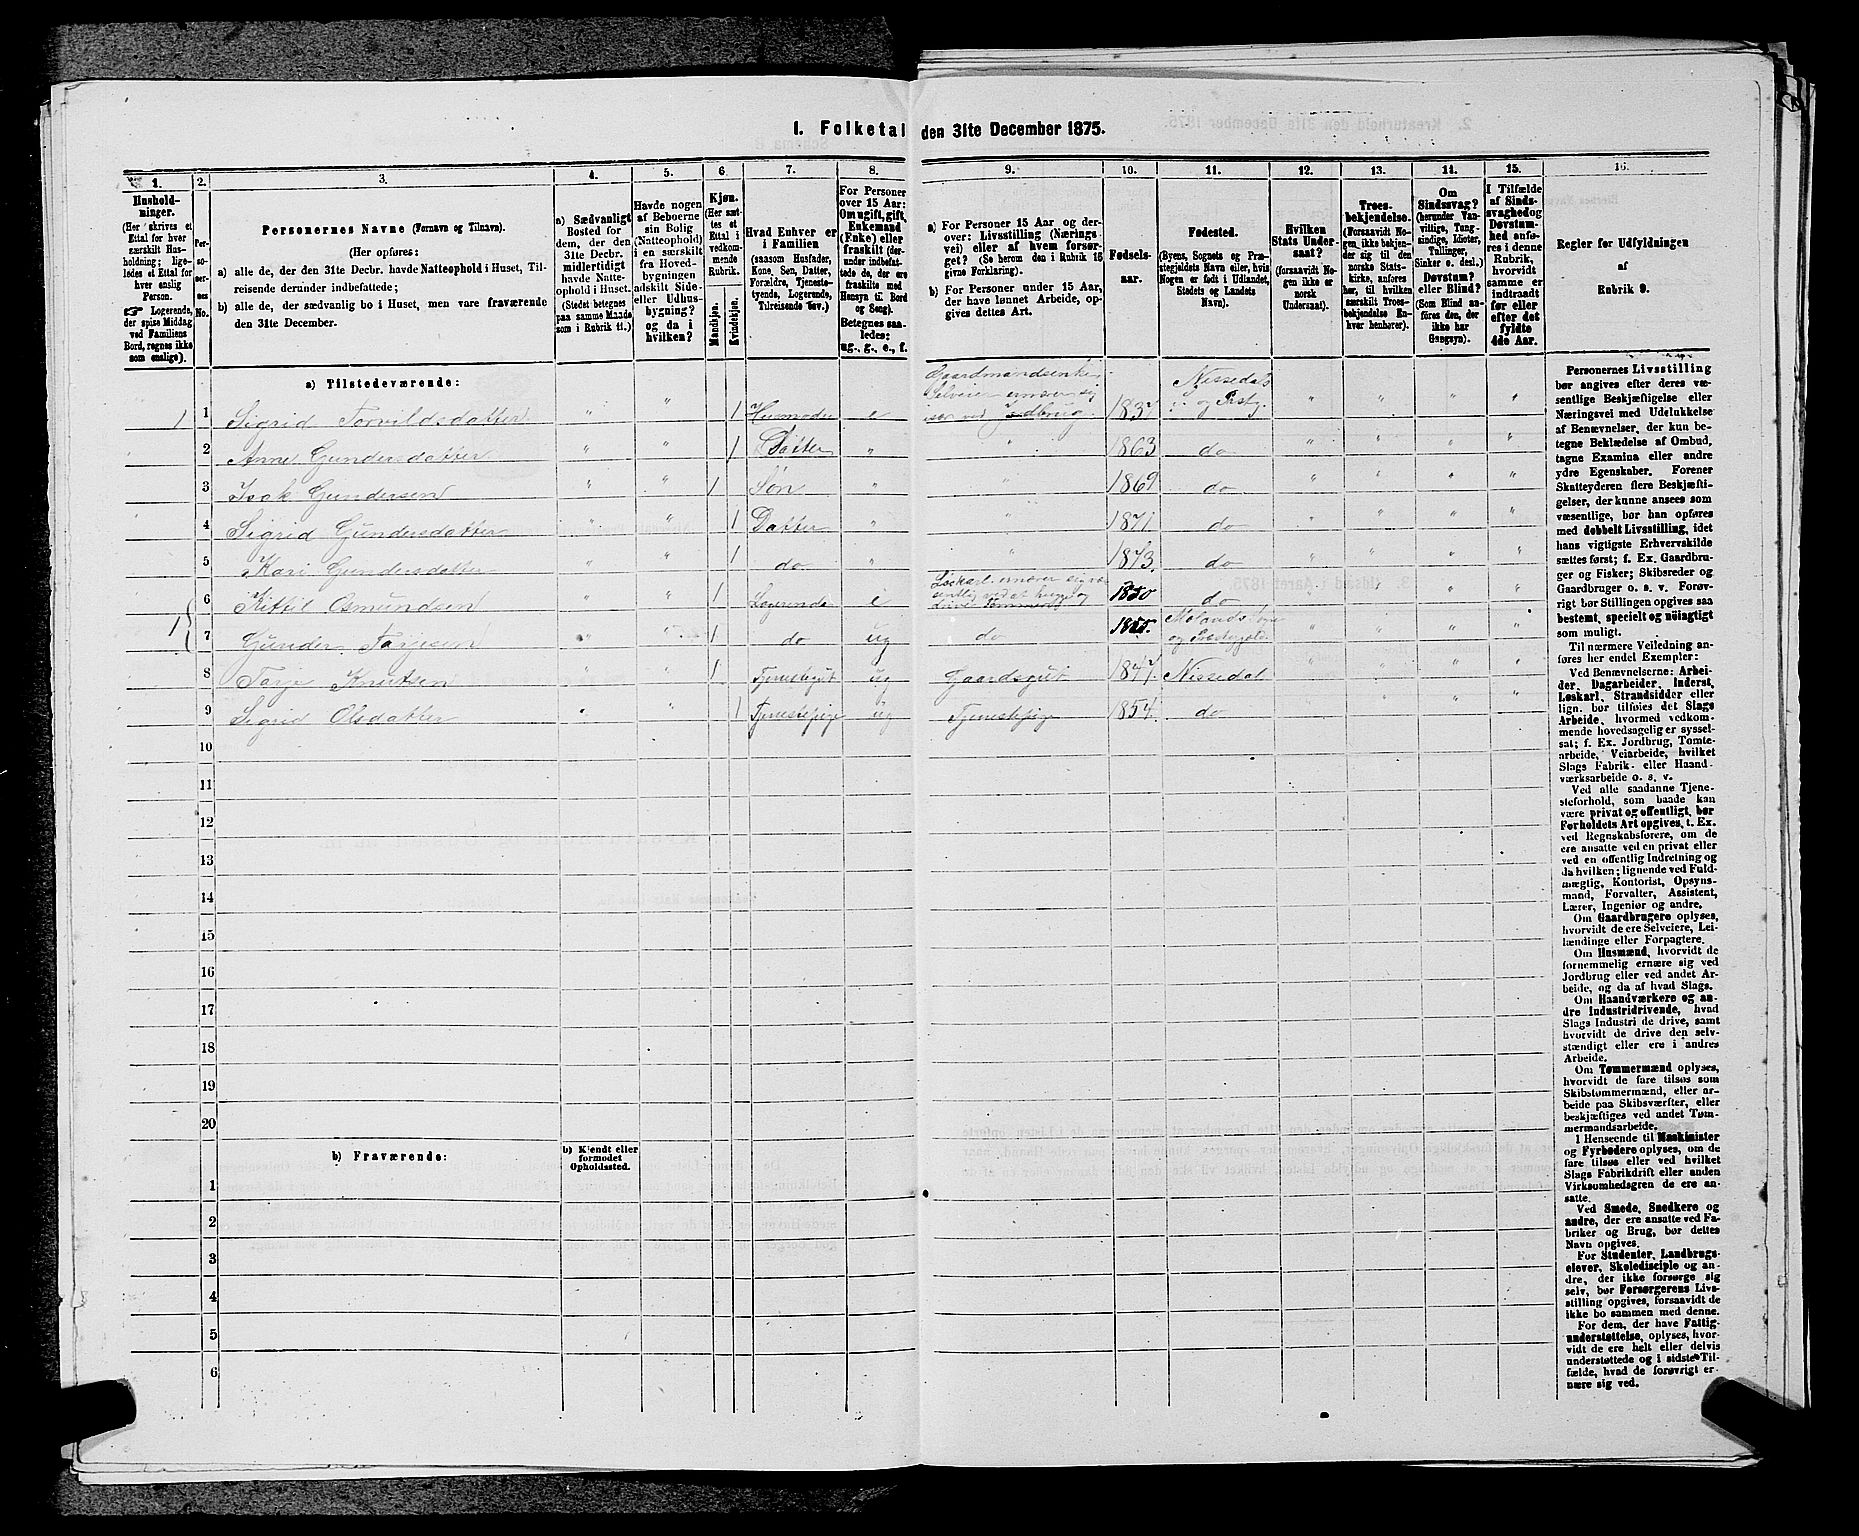 1. Folketal den 31te December 1875.
1.
Hushold-
ninger.
(Her skrives et
Ettal for hver
særskilt Hus-
holdning; lige-
ledes et Ettal for
hver enslig
Person.
Logerende,
der spise Middag
ved Familiens
Bord, regnes ikke
som enslige).
2.
Per-
so-
ner-
nes
No.
3.
Personernes Navne (Fornavn og Tilnavn).
(Her opføres:
a) alle de, der den 31te Decbr. havde Natteophold i Huset, Til-
reisende derunder indbefattede;
b) alle de, der sædvanlig bo i Huset, men vare fraværende
den 31te December.
4.
a) Sædvanligt
Bosted for
dem, der den
31te Decbr.
midlertidigt
havde Natte-
ophold i Huset.
(Stedet betegnes
paa samme Maade
som i Rubrik 11.)
5.
Havde nogen
af Beboerne
sin Bolig
(Natteophold)
i en særskilt
fra Hoved-
bygningen
adskilt Side-
eller Udhus-
bygning?
og da i
hvilken?
6.
Kjøn.
(Her sæt-
tes et
Ettal i
vedkom-
mende
Rubrik.
Mandkjøn.
Kvindekjøn.
7.
Hvad Enhver er
i Familien
(saasom Husfader,
Kone, Søn, Datter,
Forældre, Tjeneste-
tyende, Logerende,
Tilreisende osv.)
8.
For Personer
over 15 Aar:
Om ugift, gift,
Enkemand
(Enke) eller
fraskilt (der-
under indbefat-
tede de, der ere
fraskilte med
Hensyn til Bord
og Seng).
Betegnes saa-
ledes:
ug., g., e., f.
9.
a) For Personer 15 Aar og der-
over: Livsstilling (Nærings-
vei) eller af hvem forsør-
get? (Se herom den i Rubrik 16
givne Forklaring).
b) For Personer under 15 Aar,
der have lønnet Arbeide, op-
gives dettes Art.
10.
Fødsels-
aar.
11.
Fødested.
(Byens, Sognets og Præ-
stegjeldets Navn eller, hvis
Nogen er født i Udlandet,
Stedets og Landets
Navn).
12.
Hvilken
Stats Under-
saat?
(forsaavidt No-
gen ikke er
norsk
Undersaat).
13.
Troes-
bekjendelse.
(Forsaavidt No-
gen, ikke bekjen-
der sig til den
norske Stats-
kirke, anføres
her, til hvilken
særskilt Troes-
bekjendelse En-
hver henhører).
14.
Om
Sindssvag?
(herunder Van-
vittige, Tung-
sindige, Idioter,
Tullinger,
Sinker o. desl.)
Døvstum?
eller Blind?
(Som Blind an-
føres den, der
ikke har
Gangsyn).
15.
I Tilfælde
af Sinds-
svaghed og
Døvstum-
hed anfø-
res i denne
Rubrik,
hvorvidt
samme er
indtraadt
før eller
efter det
fyldte
4de Aar.
16.
Regler for Udfyldningen
af
Rubrik 9.
a) Tilstedeværende:
1 1 Sigrid Torvildsdatter " " 1 Husmoder e Gaardmandsenke Selveier ernærer sig især ved Jordbrug. 1837 Nissedal S. og Prstg. " " " "
2 Anne Gundersdatter " " 1 Datter " " 1863 do " " " "
3 Isak Gundersen " " 1 Søn " " 1869 do " " " "
4 Sigrid Gundersdatter " " 1 Datter " " 1871. do " " " "
5 Kari Gundersdatter " 1 do " " 1873. do " " " "
6 Kittil Osmundsen " " 1 Logerende e Løskarl ernærer sig væ-
sentlig ved at hugge og
drive Tømmer 1830 do " "
1 7 Gunder Tarjesen " " 1 do ug do 1850. Molands Sogn
og Præstegjeld " " " "
8 Tarje Knutsen " " 1 Tjenestegut ug Gaardsgut 1847. Nissedal " " " "
9 Sigrid Olsdatter " " 1 Tjenestepige ug Tjenestepige 1854. do " " "
10
11
12
13
14
15
16
17
18
19
20
b) Fraværende:
b) Kjendt eller
formodet
Opholdssted.
1
2
3
4
5
6
Personernes Livsstilling
bør angives efter deres væ-
sentlige Beskjæftigelse eller
Næringsvei med Udelukkelse
af Benævnelser, der kun be-
tegne Beklædelse af Ombud,
tagne Examina eller andre
ydre Egenskaber. Forener
Skatteyderen flere Beskjæfti-
gelser, der kunne ansees som
væsentlige, bør han opføres
med dobbelt Livsstilling, idet
hans vigtigste Erhvervskilde
sættes først; f. Ex. Gaardbru-
ger og Fisker; Skibsreder og
Gaardbruger o. s. v. Forøv-
rigt bør Stillingen opgives saa
bestemt, specielt og nøiagtigt
som muligt.
Til nærmere Veiledning an-
føres her endel Exempler:
Ved Benævnelserne: Arbei-
der, Dagarbeider, Inderst,
Løskarl, Strandsidder eller
lign. bør tilføies det Slags
Arbeide, hvormed vedkom-
mende hovedsagelig er syssel-
sat; f. Ex. Jordbrug, Tomte-
arbeide, Veiarbeide, hvilket
Slags Fabrik- eller Haand-
værksarbeide o. s. v.
Ved alle saadanne Tjene-
steforhold, som baade kan
være privat og offentligt, bør
Forholdets Art opgives, t. Ex.
ved Regnskabsførere, om de
ere ansatte ved en privat eller
ved en offentlig Indretning og
da hvilken; lignende ved Fuld-
mægtig, Kontorist, Opsyns-
mand, Forvalter, Assistent,
Lærer, Ingeniør og andre.
Om Gaardbrugere oplyses,
hvorvidt de ere Selveiere, Lei-
lændinge eller Forpagtere.
Om Husmænd, hvorvidt de
fornemmelig ernære sig ved
Jordbrug eller ved andet Ar-
beide, og da af hvad Slags.
Om Haandværkere og an-
dre Industridrivende, hvad
Slags Industri de drive, samt
hvorvidt de drive den selv-
stændigt eller ere i andres
Arbeide.
Om Tømmermænd oplyses,
hvorvidt de fare tilsøs som
Skibstømmermænd, eller ar-
beide paa Skibsværfter, eller
beskjæftiges ved andet Tøm-
mermandsarbeide.
I Henseende til Maskinister
og Fyrbødere oplyses, om de
fare tilsøs eller ved hvilket
Slags Fabrikdrift eller anden
Virksomhedsgren de ere an-
satte.
Ved Smede, Snedkere og
andre, der ere ansatte ved Fa-
briker og Brug, bør dettes
Navn opgives.
For Studenter, Landbrugs-
elever, Skoledisciple og an-
dre, der ikke forsørge sig
selv, bør Forsørgerens Livs-
stilling opgives, forsaavidt de
ikke bo sammen med denne.
For dem, der have Fattig-
understøttelse, oplyses, hvor-
vidt de ere helt eller delvis
understøttede og i sidste Til-
fælde, hvad de forøvrigt er-
nære sig ved.